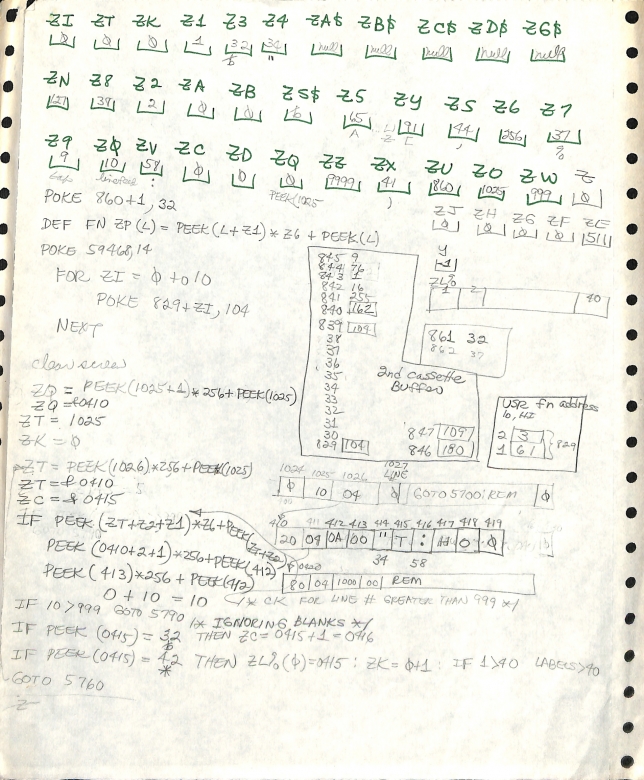 ZI ZT ZK Z1 Z3 Z4 ZA$ ZB$ ZC$ ZD$ ZG$
0 0 0 1 32 34 null null null null null
ƀ "
ZN Z8 Z2 ZA ZB ZS$ Z5 ZY ZS Z6 Z7
127 38 2 0 0 ƀ 65 91 44 256 37
A Z [ , %
Z9 ZØ ZV ZC ZD ZQ ZZ ZX ZU ZO ZW Z
9 10 58 0 0 0 9999 41 860 1025 999 0
linefeed : PEEK(1025 )
POKE 860+1,32
ZJ ZH ZG ZF ZE
0 0 0 0 511
DEF FN ZP(L) = PEEK(L+Z1)*Z6+PEEK(L)
Y
1
POKE 59468,14
ZL%
1 2 40
FOR ZI = 0 to 10
POKE 829+ZI, 104
NEXT
845 9
844 76
843 1
842 16
841 255
840 162
839 104
38
37
36
35
34
33
32
31
30
829 104
2nd cassette
Buffer
847 109
846 180
861 32
862 37
USR fn address
lo, HI
2 3
1 61
829
clear screen
ZQ = PEEK(1025+1)*256+PEEK(1025)
ZQ = 0410
ZT = 1025
ZK = 0
ZT = PEEK(1026)*256+PEEK(1025)
ZT = 0410
ZC = 0415
1024 1025 1026 1027
LINE
0 10 04 0 GOTO 5700:REM 0
IF PEEK(ZT+Z2+Z1)*Z6+PEEK(ZT+Z2)
410 411 412 413 414 415 416 417 418 419
20 04 0A 00 " T : H O 0
34 58
PEEK(0410+2+1)*256+PEEK(412)
PEEK(413)*256+PEEK(412)
80 04 1000 00 REM
0 + 10 = 10 /* CK FOR LINE # GREATER THAN 999 */
IF 10>999 GOTO 5790 /* IGNORING BLANKS */
IF PEEK(0415) = 32 THEN ZC=0415+1=0416
ƀ
IF PEEK(0415) = 42 THEN ZL%(0)=0415: ZK=0+1: IF 1>40 LABELS>40
*
GOTO 5760
Z